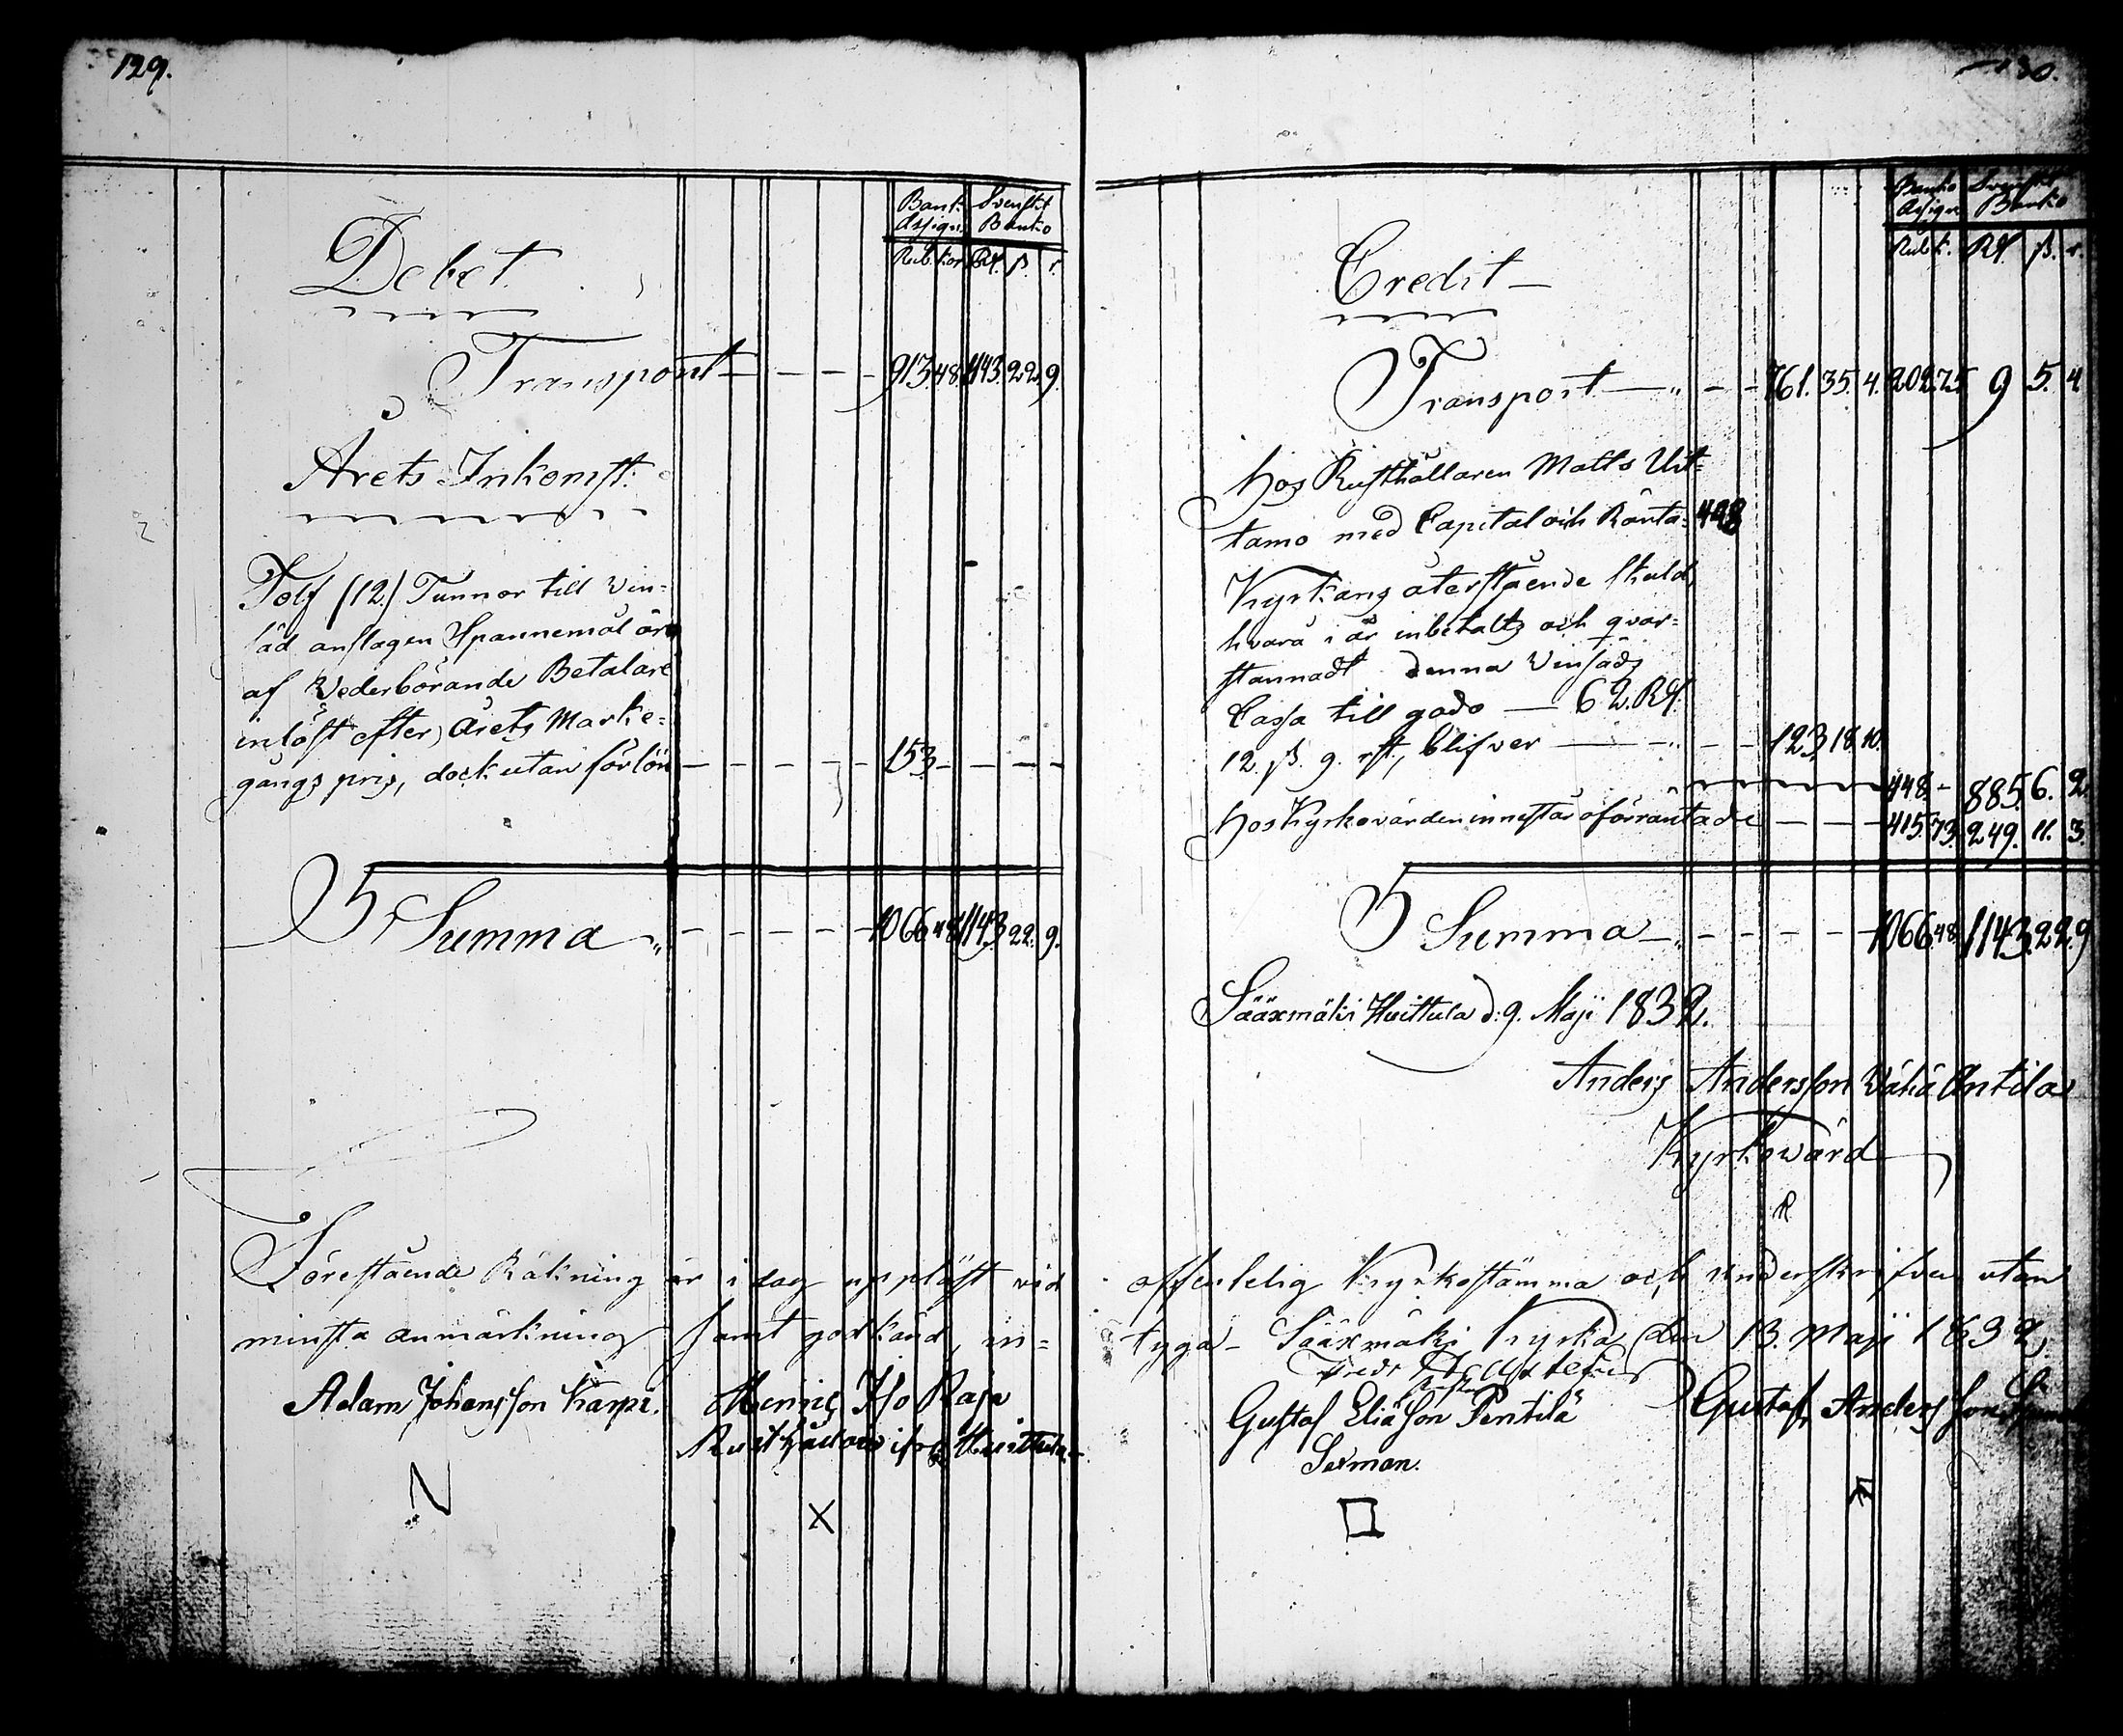 129.
Bank. Assign. Svenskt Banko
Rub. kop Rd. ß. r.
Debet
Transport — — — 913. 48. 1143. 22. 9.
Årets Inkomst:
Tolf (12.) Tunnor till Vin-
säd anslagen Spannemål äro
af Vederbörande Betalare
inlöst efter Årets Marke-
gångs pris, dock utan förlön — — — — — 153 — — — —
Summa — — — — — 1066. 48. 1143. 22. 9.
Förestående Räkning är i dag uppläst vid
minsta anmärkning samt godkänd, in-
Adam Johansson Karpi.
Henric Iso Raja
Rusthållare ifrån Huittula
N
X
130.
Banko Assign. Svenskt Banko
Rub. k. Rd. ß. r.
Credit —
Transport — — — 761. 35. 4. 202. 75 9 5. 4
Hos Rusthållaren Matts Uit-
tamo med Capital och Ränta 448
Kyrkans återstående skuld,
hvara i år inbetalts och qvar-
stannadt denna Vinsäds
Cassa till godo — 62. Rd.
12. ß. 9. rst., blifver — — — 123 18. 10.
448. - 885. 6. 2.
Hos Kyrkovärden innestår oförräntade — — — 415. 73. 249. 11. 3.
Summa — — — — — 1066. 48. 1143. 22. 9
Sääxmäki Huittula d: 9. Maji 1832.
Anders Andersson Vähä Antila
Kyrkovärd
offentelig Kyrkostämma och underskrifven utan
tyga - Sääxmäki Kyrka den 13. Maji 1832.
Gustaf Eliäson Pentilä
Sexman.
Gustaf Andersson